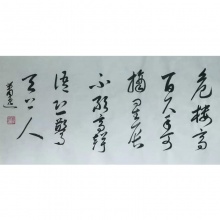 危楼高
百尺手可
摘星辰
不敢高声
语恐惊
天上人